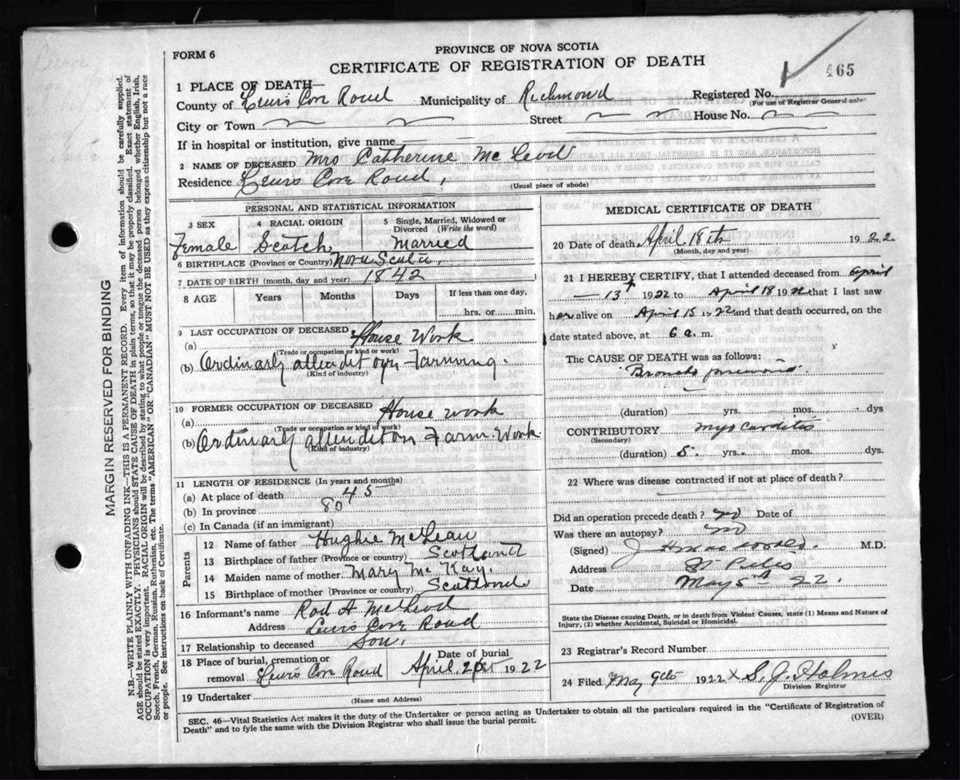 FORM 6
PROVINCE OF NOVA SCOTIA
CERTIFICATE OF REGISTRATION OF DEATH
465
1 PLACE OF DEATH
County of Lewis Cove Road Municipality of Richmond Registered No.
(For use of Registrar General only)
City or Town Street House No.
If in hospital or institution, give name
2 NAME OF DECEASED Mrs Catherine McLeod
Residence Lewis Cove Road,
(Usual place of abode)
PERSONAL AND STATISTICAL INFORMATION
3 SEX 4 RACIAL ORIGIN 5 Single, Married, Widowed or Divorced (Write the word)
Female Scotch Married
6 BIRTHPLACE (Province or Country) Nova Scotia,
7 DATE OF BIRTH (month, day and year) 1842
8 AGE Years Months Days If less than one day,
hrs. or min.
9 LAST OCCUPATION OF DECEASED
(a) House Work
(Trade or occupation or kind of work)
(b) Ordinarly Farming.
(Kind of industry)
10 FORMER OCCUPATION OF DECEASED
(a) House work
(Trade or occupation or kind of work)
(b) Ordinarly Farm Work
(Kind of industry)
11 LENGTH OF RESIDENCE (In years and months)
(a) At place of death 45
(b) In province 80
(c) In Canada (if an immigrant)
Parents
12 Name of father Hughie McLean
13 Birthplace of father (Province or country) Scotland
14 Maiden name of mother Mary McKay.
15 Birthplace of mother (Province or country) Scotland
16 Informant's name Rod A McLeod
Address Lewis Cove Road
17 Relationship to deceased Son,
18 Place of burial, cremation or removal Lewis Cove Road Date of burial April, 21st 1922
19 Undertaker
(Name and Address)
MEDICAL CERTIFICATE OF DEATH
20 Date of death April 18th 1922
(Month, day and year)
21 I HEREBY CERTIFY, that I attended deceased from April
13th 1922 to April 18 1922 that I last saw
her alive on April 15 1922 and that death occurred, on the
date stated above, at 6 a. m.
The CAUSE OF DEATH was as follows:
Broncho pneumonia
(duration) yrs. mos. dys
CONTRIBUTORY Myo Carditis
(Secondary)
(duration) 5. yrs. mos. dys.
22 Where was disease contracted if not at place of death?
Did an operation precede death? no Date of
Was there an autopsy? no
(Signed) J M.D.
Address St Peters
Date May 5th 22.
State the Disease causing Death, or in death from Violent Causes, state (1) Means and Nature of Injury, (2) whether Accidental, Suicidal or Homicidal.
23 Registrar's Record Number
24 Filed May 9th 1922 X S. J. Holmes
Division Registrar
SEC. 46—Vital Statistics Act makes it the duty of the Undertaker or person acting as Undertaker to obtain all the particulars required in the "Certificate of Registration of Death" and to fyle the same with the Division Registrar who shall issue the burial permit.
(OVER)
MARGIN RESERVED FOR BINDING
N.B.—WRITE PLAINLY WITH UNFADING INK—THIS IS A PERMANENT RECORD. Every item of information should be carefully supplied.
AGE should be stated EXACTLY. PHYSICIANS should STATE CAUSE OF DEATH in plain terms, so that it may be properly classified. Exact statement of
OCCUPATION is very important. RACIAL ORIGIN will be described by stating to what people or tongue the deceased person belonged whether English, Irish,
Scotch, French, German, Russian, Ruthenian, etc. The terms "AMERICAN" OR "CANADIAN" MUST NOT BE USED as they express citizenship but not a race
or people. See instructions on back of Certificate.